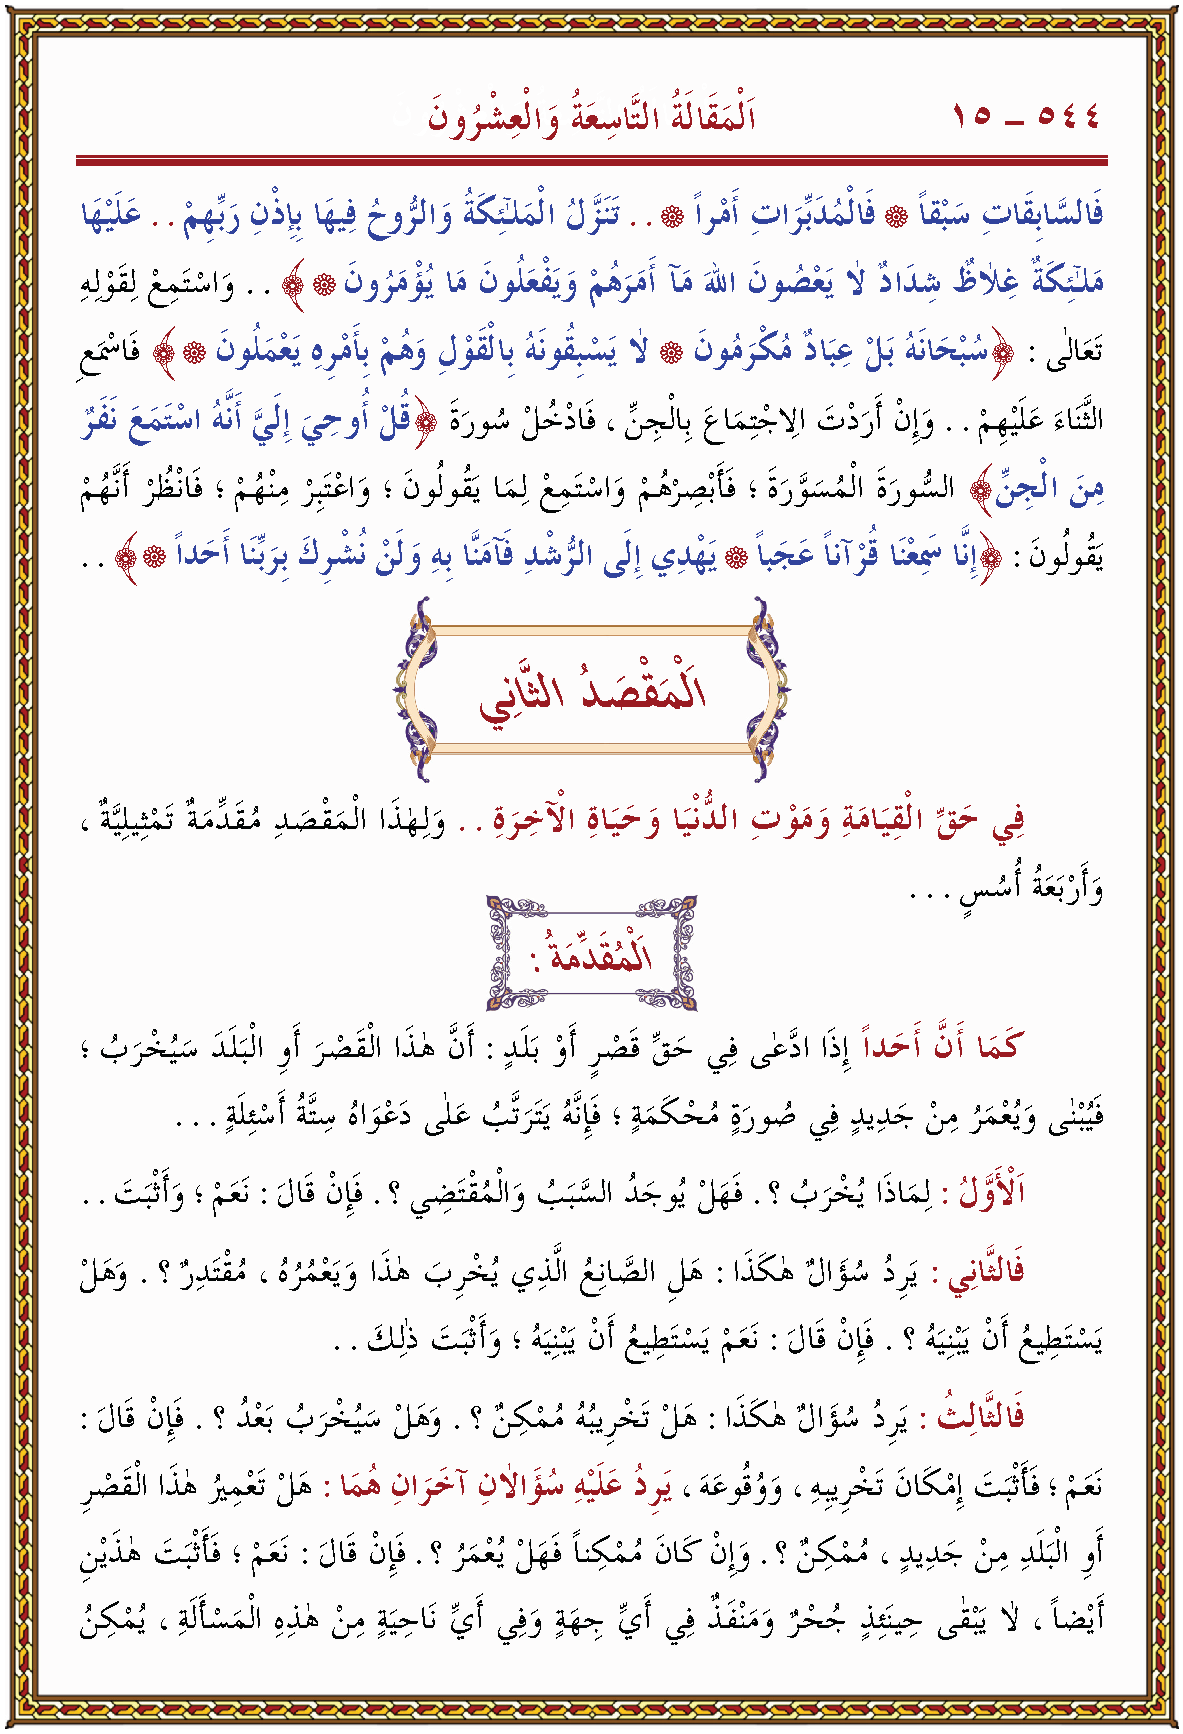 ٥٤٤ – ١٥ اَلْمَقَالَةُ التَّاسِعَةُ وَالْعِشْرُونَ
فَالسَّابِقَاتِ سَبْقاً ۞ فَالْمُدَبِّرَاتِ أَمْراً ۞ . . تَنَزَّلُ الْمَلٰٓئِكَةُ وَالرُّوحُ فِيهَا بِإِذْنِ رَبِّهِمْ . . عَلَيْهَا
مَلٰٓئِكَةٌ غِلَاظٌ شِدَادٌ لَا يَعْصُونَ اللهَ مَآ أَمَرَهُمْ وَيَفْعَلُونَ مَا يُؤْمَرُونَ ۞ ﴾ . . وَاسْتَمِعْ لِقَوْلِهِ
تَعَالٰى : ﴿سُبْحَانَهُ بَلْ عِبَادٌ مُكْرَمُونَ ۞ لَا يَسْبِقُونَهُ بِالْقَوْلِ وَهُمْ بِأَمْرِهِ يَعْمَلُونَ ۞ ﴾ فَاسْمَعِ
الثَّنَاءَ عَلَيْهِمْ . . وَإِنْ أَرَدْتَ الِاجْتِمَاعَ بِالْجِنِّ ، فَادْخُلْ سُورَةَ ﴿قُلْ أُوحِيَ إِلَيَّ أَنَّهُ اسْتَمَعَ نَفَرٌ
مِنَ الْجِنِّ﴾ السُّورَةَ الْمُسَوَّرَةَ ؛ فَأَبْصِرْهُمْ وَاسْتَمِعْ لِمَا يَقُولُونَ ؛ وَاعْتَبِرْ مِنْهُمْ ؛ فَانْظُرْ أَنَّهُمْ
يَقُولُونَ : ﴿إِنَّا سَمِعْنَا قُرْآناً عَجَباً ۞ يَهْدِي إِلَى الرُّشْدِ فَآمَنَّا بِهِ وَلَنْ نُشْرِكَ بِرَبِّنَا أَحَداً ۞ ﴾ . .
اَلْمَقْصَدُ الثَّانِي
فِي حَقِّ الْقِيَامَةِ وَمَوْتِ الدُّنْيَا وَحَيَاةِ الْآخِرَةِ . . وَلِهٰذَا الْمَقْصَدِ مُقَدِّمَةٌ تَمْثِيلِيَّةٌ ،
وَأَرْبَعَةُ أُسُسٍ . . .
اَلْمُقَدِّمَةُ :
كَمَا أَنَّ أَحَداً إِذَا ادَّعٰى فِي حَقِّ قَصْرٍ أَوْ بَلَدٍ : أَنَّ هٰذَا الْقَصْرَ أَوِ الْبَلَدَ سَيُخْرَبُ ؛
فَيُبْنٰى وَيُعْمَرُ مِنْ جَدِيدٍ فِي صُورَةٍ مُحْكَمَةٍ ؛ فَإِنَّهُ يَتَرَتَّبُ عَلٰى دَعْوَاهُ سِتَّةُ أَسْئِلَةٍ . . .
اَلْأَوَّلُ : لِمَاذَا يُخْرَبُ ؟ . فَهَلْ يُوجَدُ السَّبَبُ وَالْمُقْتَضِي ؟ . فَإِنْ قَالَ : نَعَمْ ؛ وَأَثْبَتَ . .
فَالثَّانِي : يَرِدُ سُؤَالٌ هٰكَذَا : هَلِ الصَّانِعُ الَّذِي يُخْرِبَ هٰذَا وَيَعْمُرُهُ ، مُقْتَدِرٌ ؟ . وَهَلْ
يَسْتَطِيعُ أَنْ يَبْنِيَهُ ؟ . فَإِنْ قَالَ : نَعَمْ يَسْتَطِيعُ أَنْ يَبْنِيَهُ ؛ وَأَثْبَتَ ذٰلِكَ . .
فَالثَّالِثُ : يَرِدُ سُؤَالٌ هٰكَذَا : هَلْ تَخْرِيبُهُ مُمْكِنٌ ؟ . وَهَلْ سَيُخْرَبُ بَعْدُ ؟ . فَإِنْ قَالَ :
نَعَمْ ؛ فَأَثْبَتَ إِمْكَانَ تَخْرِيبِهِ ، وَوُقُوعَهَ ، يَرِدُ عَلَيْهِ سُؤَالَانِ آخَرَانِ هُمَا : هَلْ تَعْمِيرُ هٰذَا الْقَصْرِ
أَوِ الْبَلَدِ مِنْ جَدِيدٍ ، مُمْكِنٌ ؟ . وَإِنْ كَانَ مُمْكِناً فَهَلْ يُعْمَرُ ؟ . فَإِنْ قَالَ : نَعَمْ ؛ فَأَثْبَتَ هٰذَيْنِ
أَيْضاً ، لَا يَبْقٰى حِينَئِذٍ جُحْرٌ وَمَنْفَذٌ فِي أَيِّ جِهَةٍ وَفِي أَيِّ نَاحِيَةٍ مِنْ هٰذِهِ الْمَسْأَلَةِ ، يُمْكِنُ